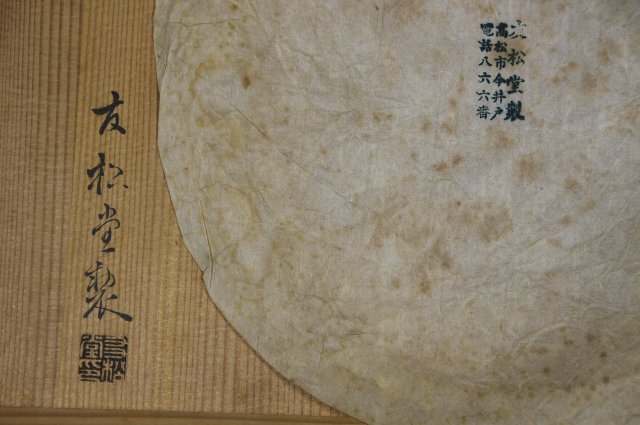 友松堂製
高松市今井戸
電話八六六番
友松堂製
友松堂印